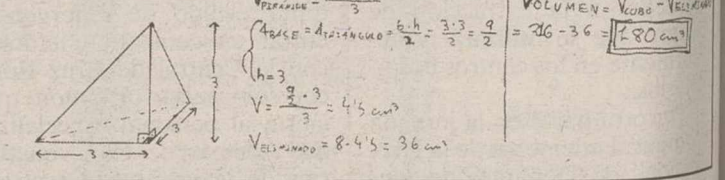 V_PIRÁMIDE = ―/3
A_BASE = A_TRIÁNGULO = b·h/2 = 3·3/2 = 9/2
h=3
V = (9/2 · 3)/3 = 4'5 cm³
V_ELIMINADO = 8·4'5 = 36 cm³
VOLUMEN = V_CUBO - V_ELIMINADO
= 216 - 36 = 180 cm³
3
3
3